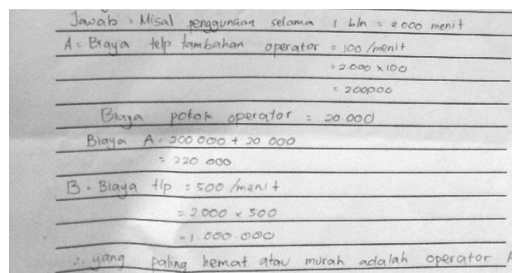 Jawab : Misal penggunaan selama 1 bln = 2000 menit
A = Biaya telp tambahan operator = 100 /menit
= 2.000 x 100
= 200000
Biaya pokok operator = 20.000
Biaya A = 200 000 + 20.000
= 220.000
B = Biaya tlp = 500 /menit
= 2000 x 500
= 1.000.000
∴ yang paling hemat atau murah adalah operator A